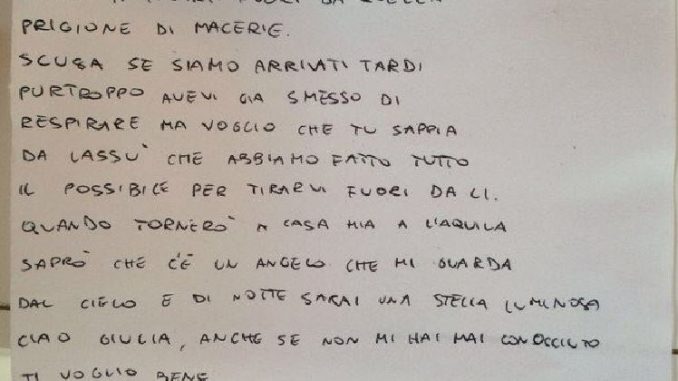 FUORI DA QUELLA
PRIGIONE DI MACERIE.
SCUSA SE SIAMO ARRIVATI TARDI
PURTROPPO AVEVI GIA SMESSO DI
RESPIRARE MA VOGLIO CHE TU SAPPIA
DA LASSU' CHE ABBIAMO FATTO TUTTO
IL POSSIBILE PER TIRARVI FUORI DA LI.
QUANDO TORNERO' A CASA MIA A L'AQUILA
SAPRO' CHE C'È UN ANGELO CHE MI GUARDA
DAL CIELO E DI NOTTE SARAI UNA STELLA LUMINOSA
CIAO GIULIA, ANCHE SE NON MI HAI MAI CONOSCIUTO
TI VOGLIO BENE